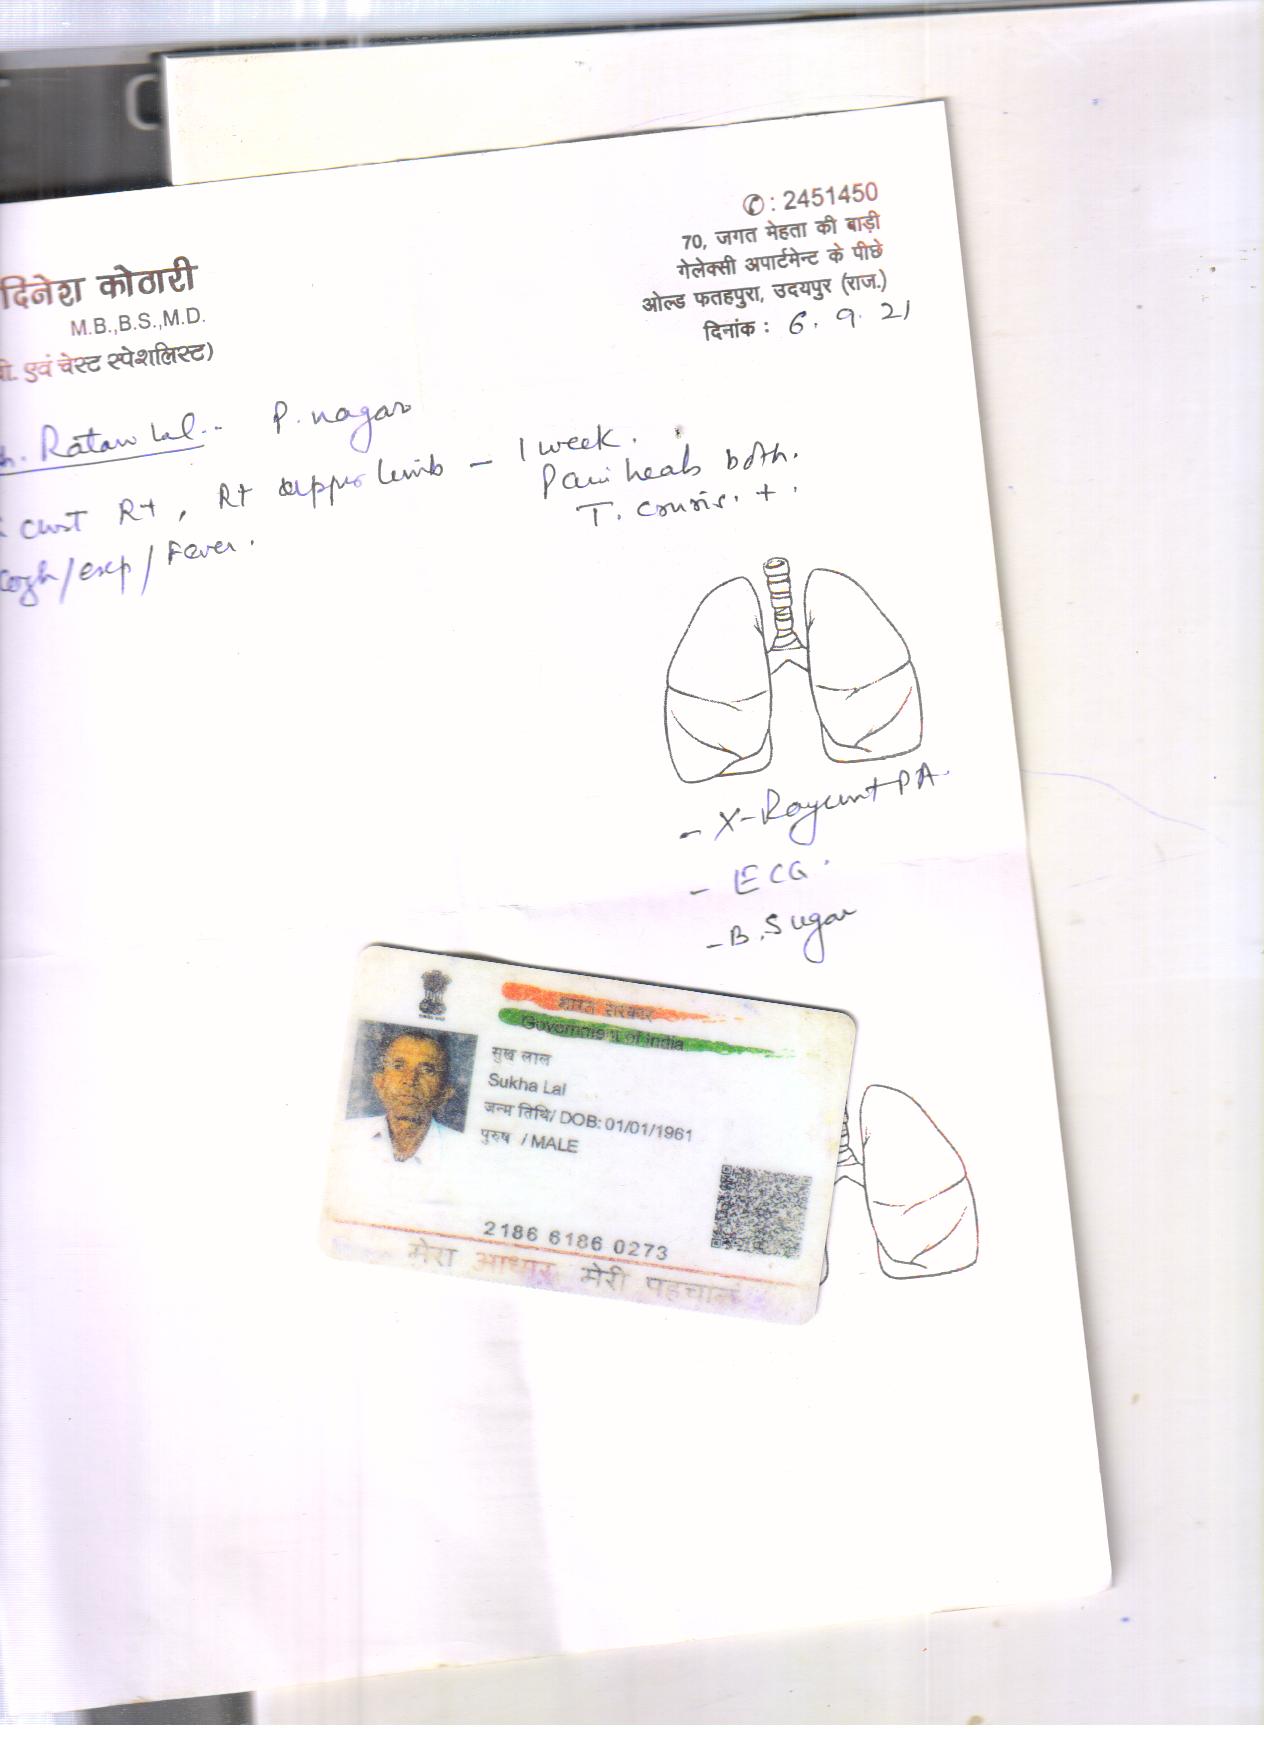 ✆ : 2451450
70, जगत मेहता की बाड़ी
गेलेक्सी अपार्टमेन्ट के पीछे
ओल्ड फतहपुरा, उदयपुर (राज.)
दिनांक : 6. 9. 21
दिनेश कोठारी
M.B.,B.S.,M.D.
एवं चेस्ट स्पेशलिस्ट)
Ratan Lal.- P. nagar
Rt, Rt upper limb - 1 week.
heals both.
T. +.
/ Fever.
- X-Ray PA.
- ECG.
- B. Sugar
भारत सरकार
Government of India
सुख लाल
Sukha Lal
जन्म तिथि/ DOB: 01/01/1961
पुरुष / MALE
2186 6186 0273
मेरा आधार, मेरी पहचान